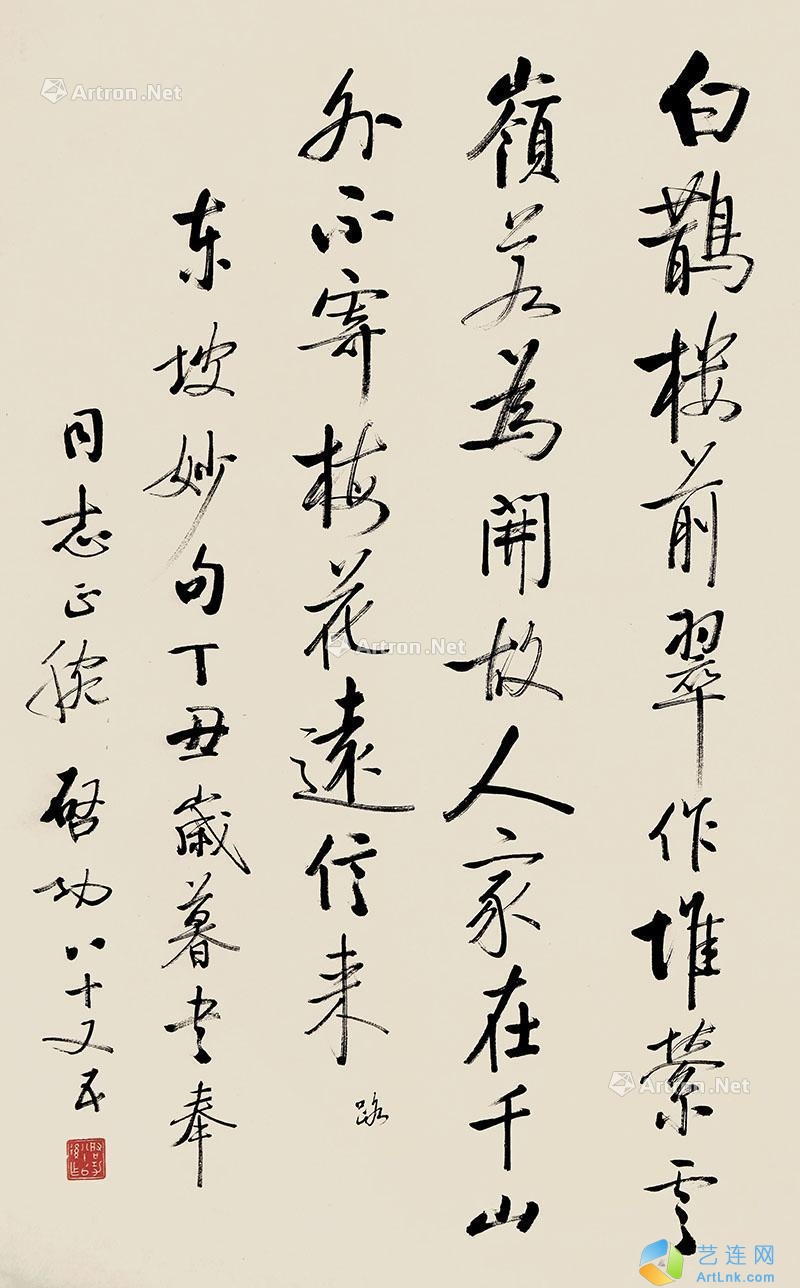 白鵲楼前翠作堆縈雲
嶺若為開故人家在千山
外不寄梅花遠信来
路
东坡妙句丁丑歲暮书奉
同志正腕 啓功 八十又五
Artron.Net
Artron.Net
Artron.Net
Artron.Net
艺连网
ArtLnk.com